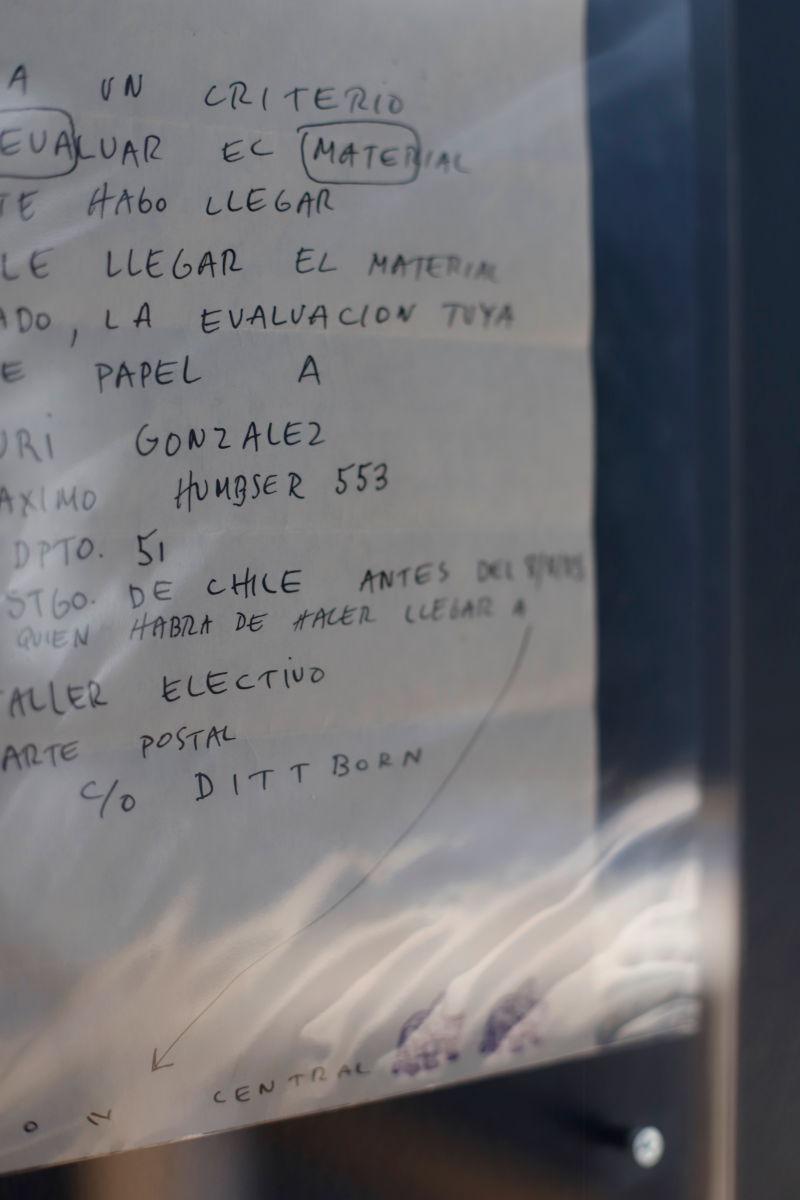 A UN CRITERIO
EVALUAR EL MATERIAL
TE HAGO LLEGAR
LE LLEGAR EL MATERIAL
ADO, LA EVALUACION TUYA
E PAPEL A
URI GONZALEZ
AXIMO HUMBSER 553
DPTO. 51
STGO. DE CHILE ANTES DEL
QUIEN HABRA DE HACER LLEGAR A
ALLER ELECTIVO
ARTE POSTAL
C/O DITTBORN
O N CENTRAL